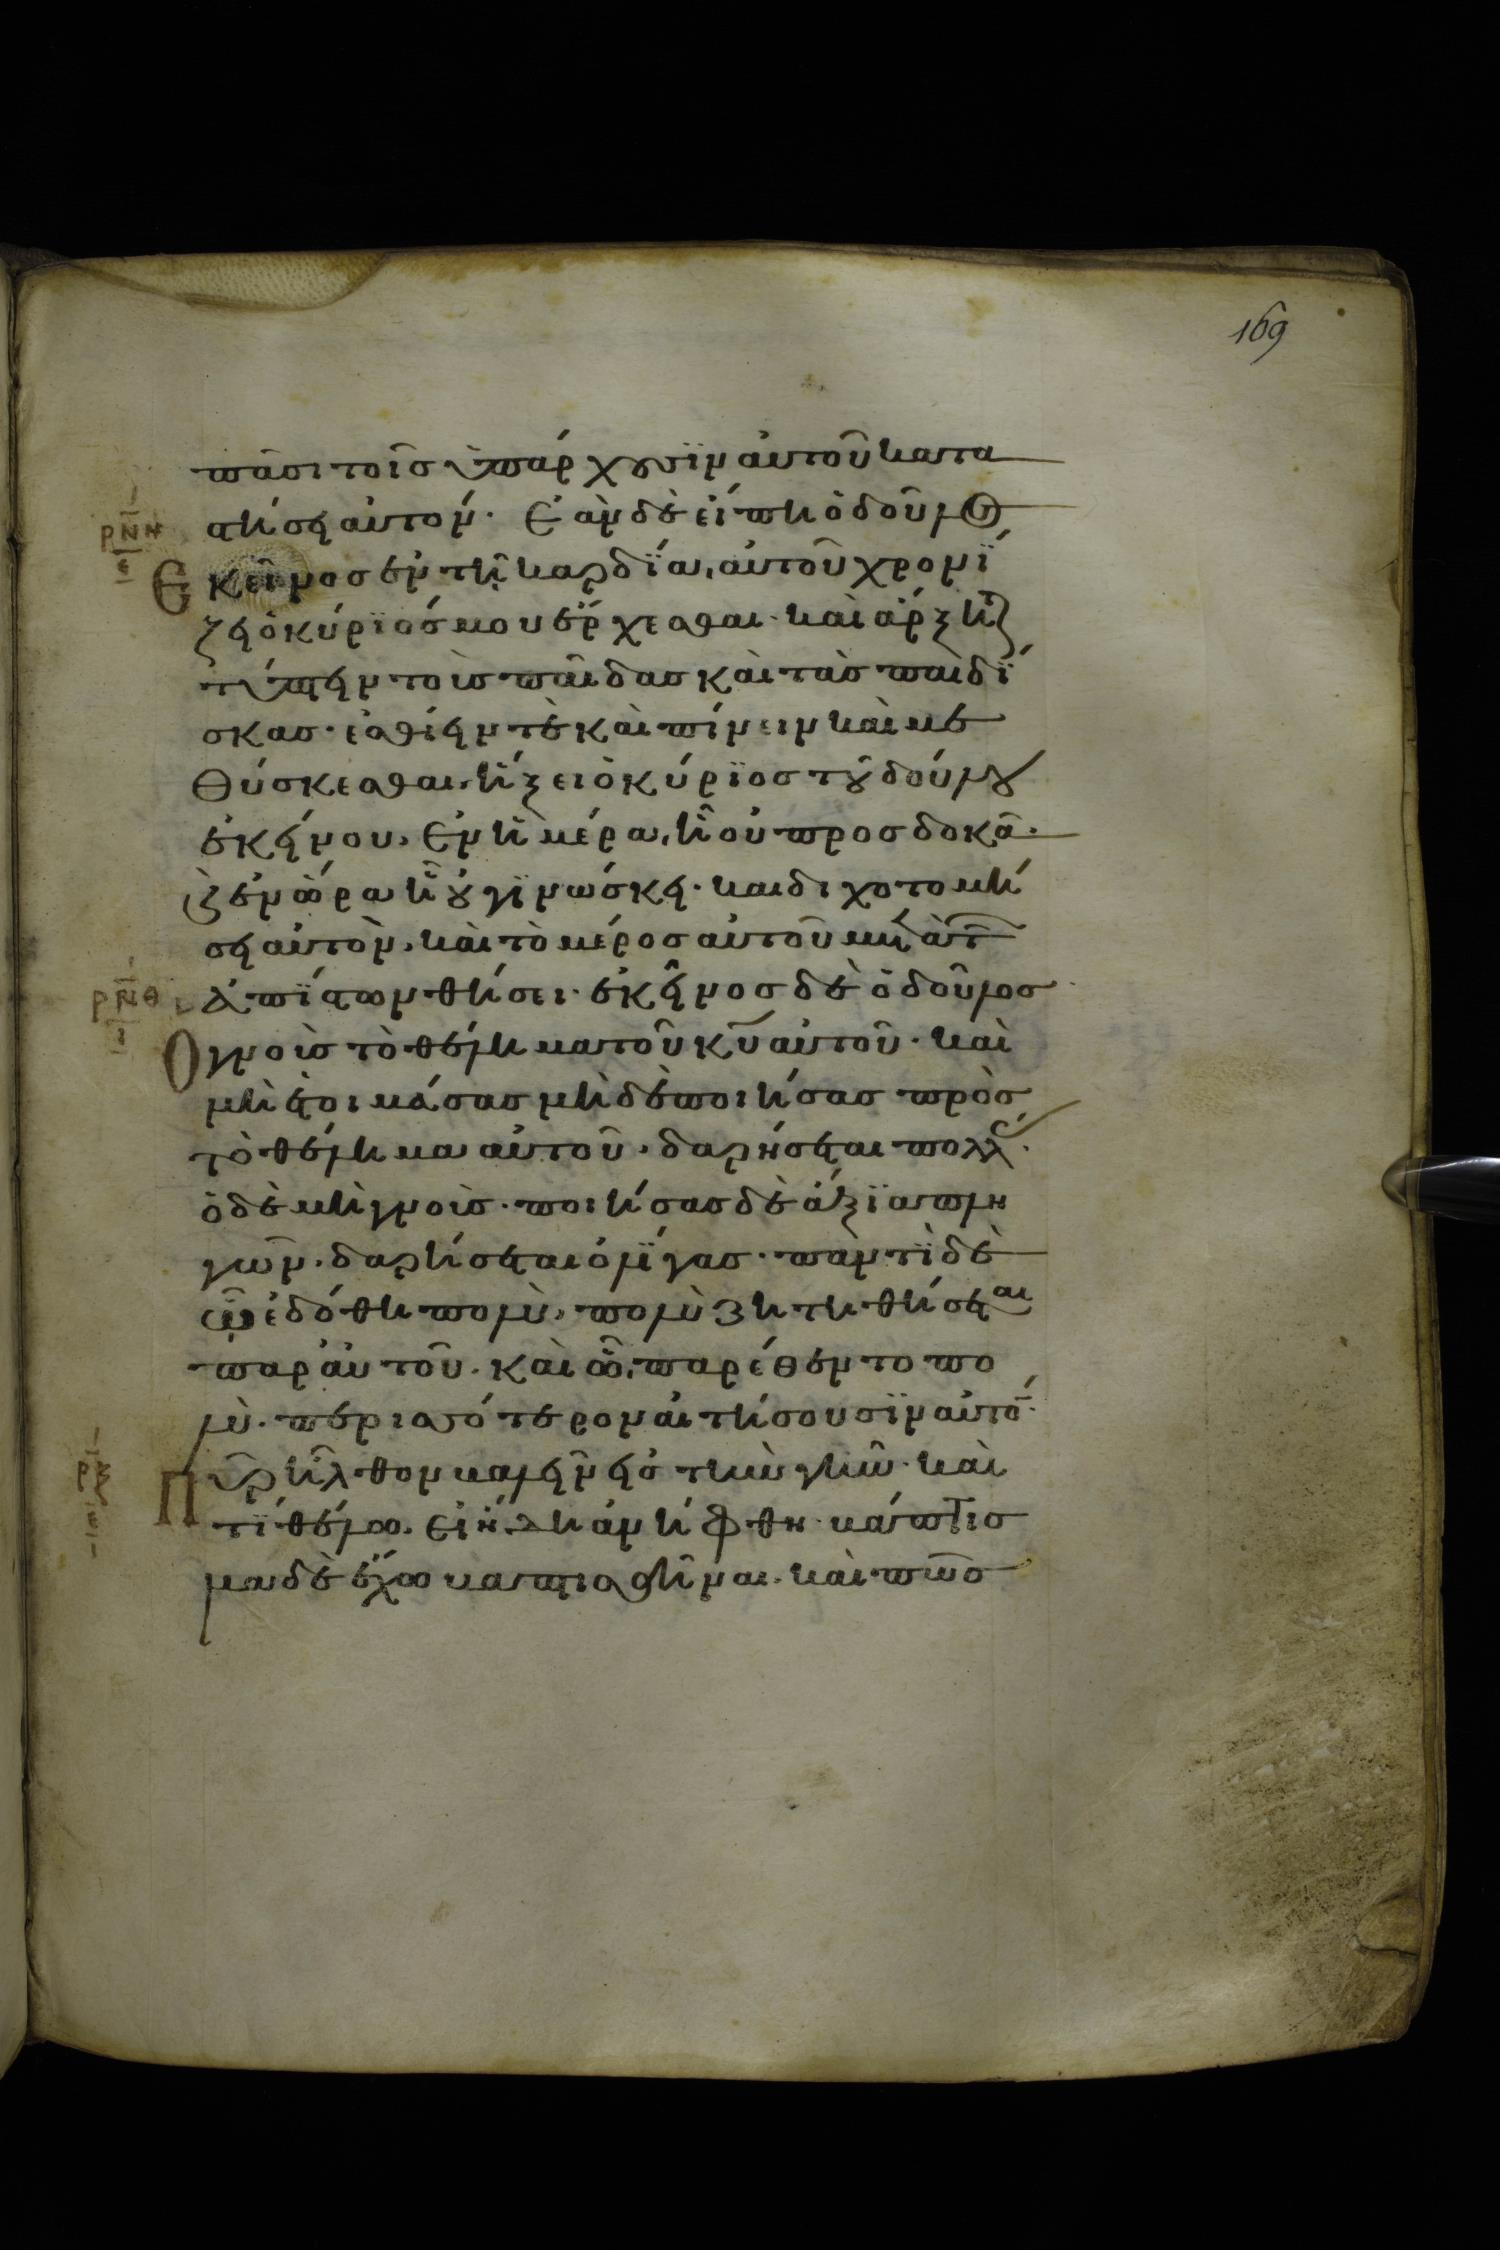 169
πᾶσι τοῖς ὑπάρχουσϊν αὐτοῦ κατα
ρνη στήσει αὐτόν. Ἐὰν δὲ εἴπη ὁ δοῦλος
ε Ἐκεῖνος ἐν τῆ καρδίᾳ, αὐτοῦ χρονί
ζει ὁ κύριός μου ἔρχεσθαι. καὶ ἄρξητ(αι)
τύπτειν τοὺς παῖδας καὶ τὰς παιδί
σκας. ἐσθίειν τὲ καὶ πίνειν καὶ με
θύσκεσθαι, ἥξει ὁ κύριος τοῦ δούλου
ἐκείνου, ἐν ἡμέρα, ἧ οὐ προσδοκᾶ.
(καὶ) ἐν ὥρα ἧ οὐ γϊνώσκει. καὶ διχοτομή
σει αὐτὸν, καὶ τὸ μέρος αὐτοῦ μετὰ τ(ῶν)
ρνθ ἀπίστων θήσει. ἐκεῖνος δὲ ὁ δοῦλος
Ὁ γνοὺς τὸ θέλημα τοῦ κυ αὐτοῦ. καὶ
μὴ ἑτοιμάσας μηδὲ ποιήσας πρὸς
τὸ θέλημα αὐτοῦ. δαρήσεται πολλάς.
ὁ δὲ μὴ γνοὺς. ποιήσας δὲ ἄξϊα πλη
γῶν. δαρήσεται ὀλΐγας. παντὶ δὲ
ᾧ ἐδόθη πολὺ, πολὺ ζητηθήσεται
παρ' αὐτοῦ. καὶ ᾧ, παρέθεντο πο
λὺ. περισσότερον αἰτήσουσϊν αὐτό(ν).
ρξ Πῦρ ἦλθον βαλεῖν εἰς τὴν γῆν. καὶ
τί θέλω. εἰ ἤδη ἀνήφθη. βάπτισ
μα δὲ ἔχω βαπτισθῆναι. καὶ πῶς